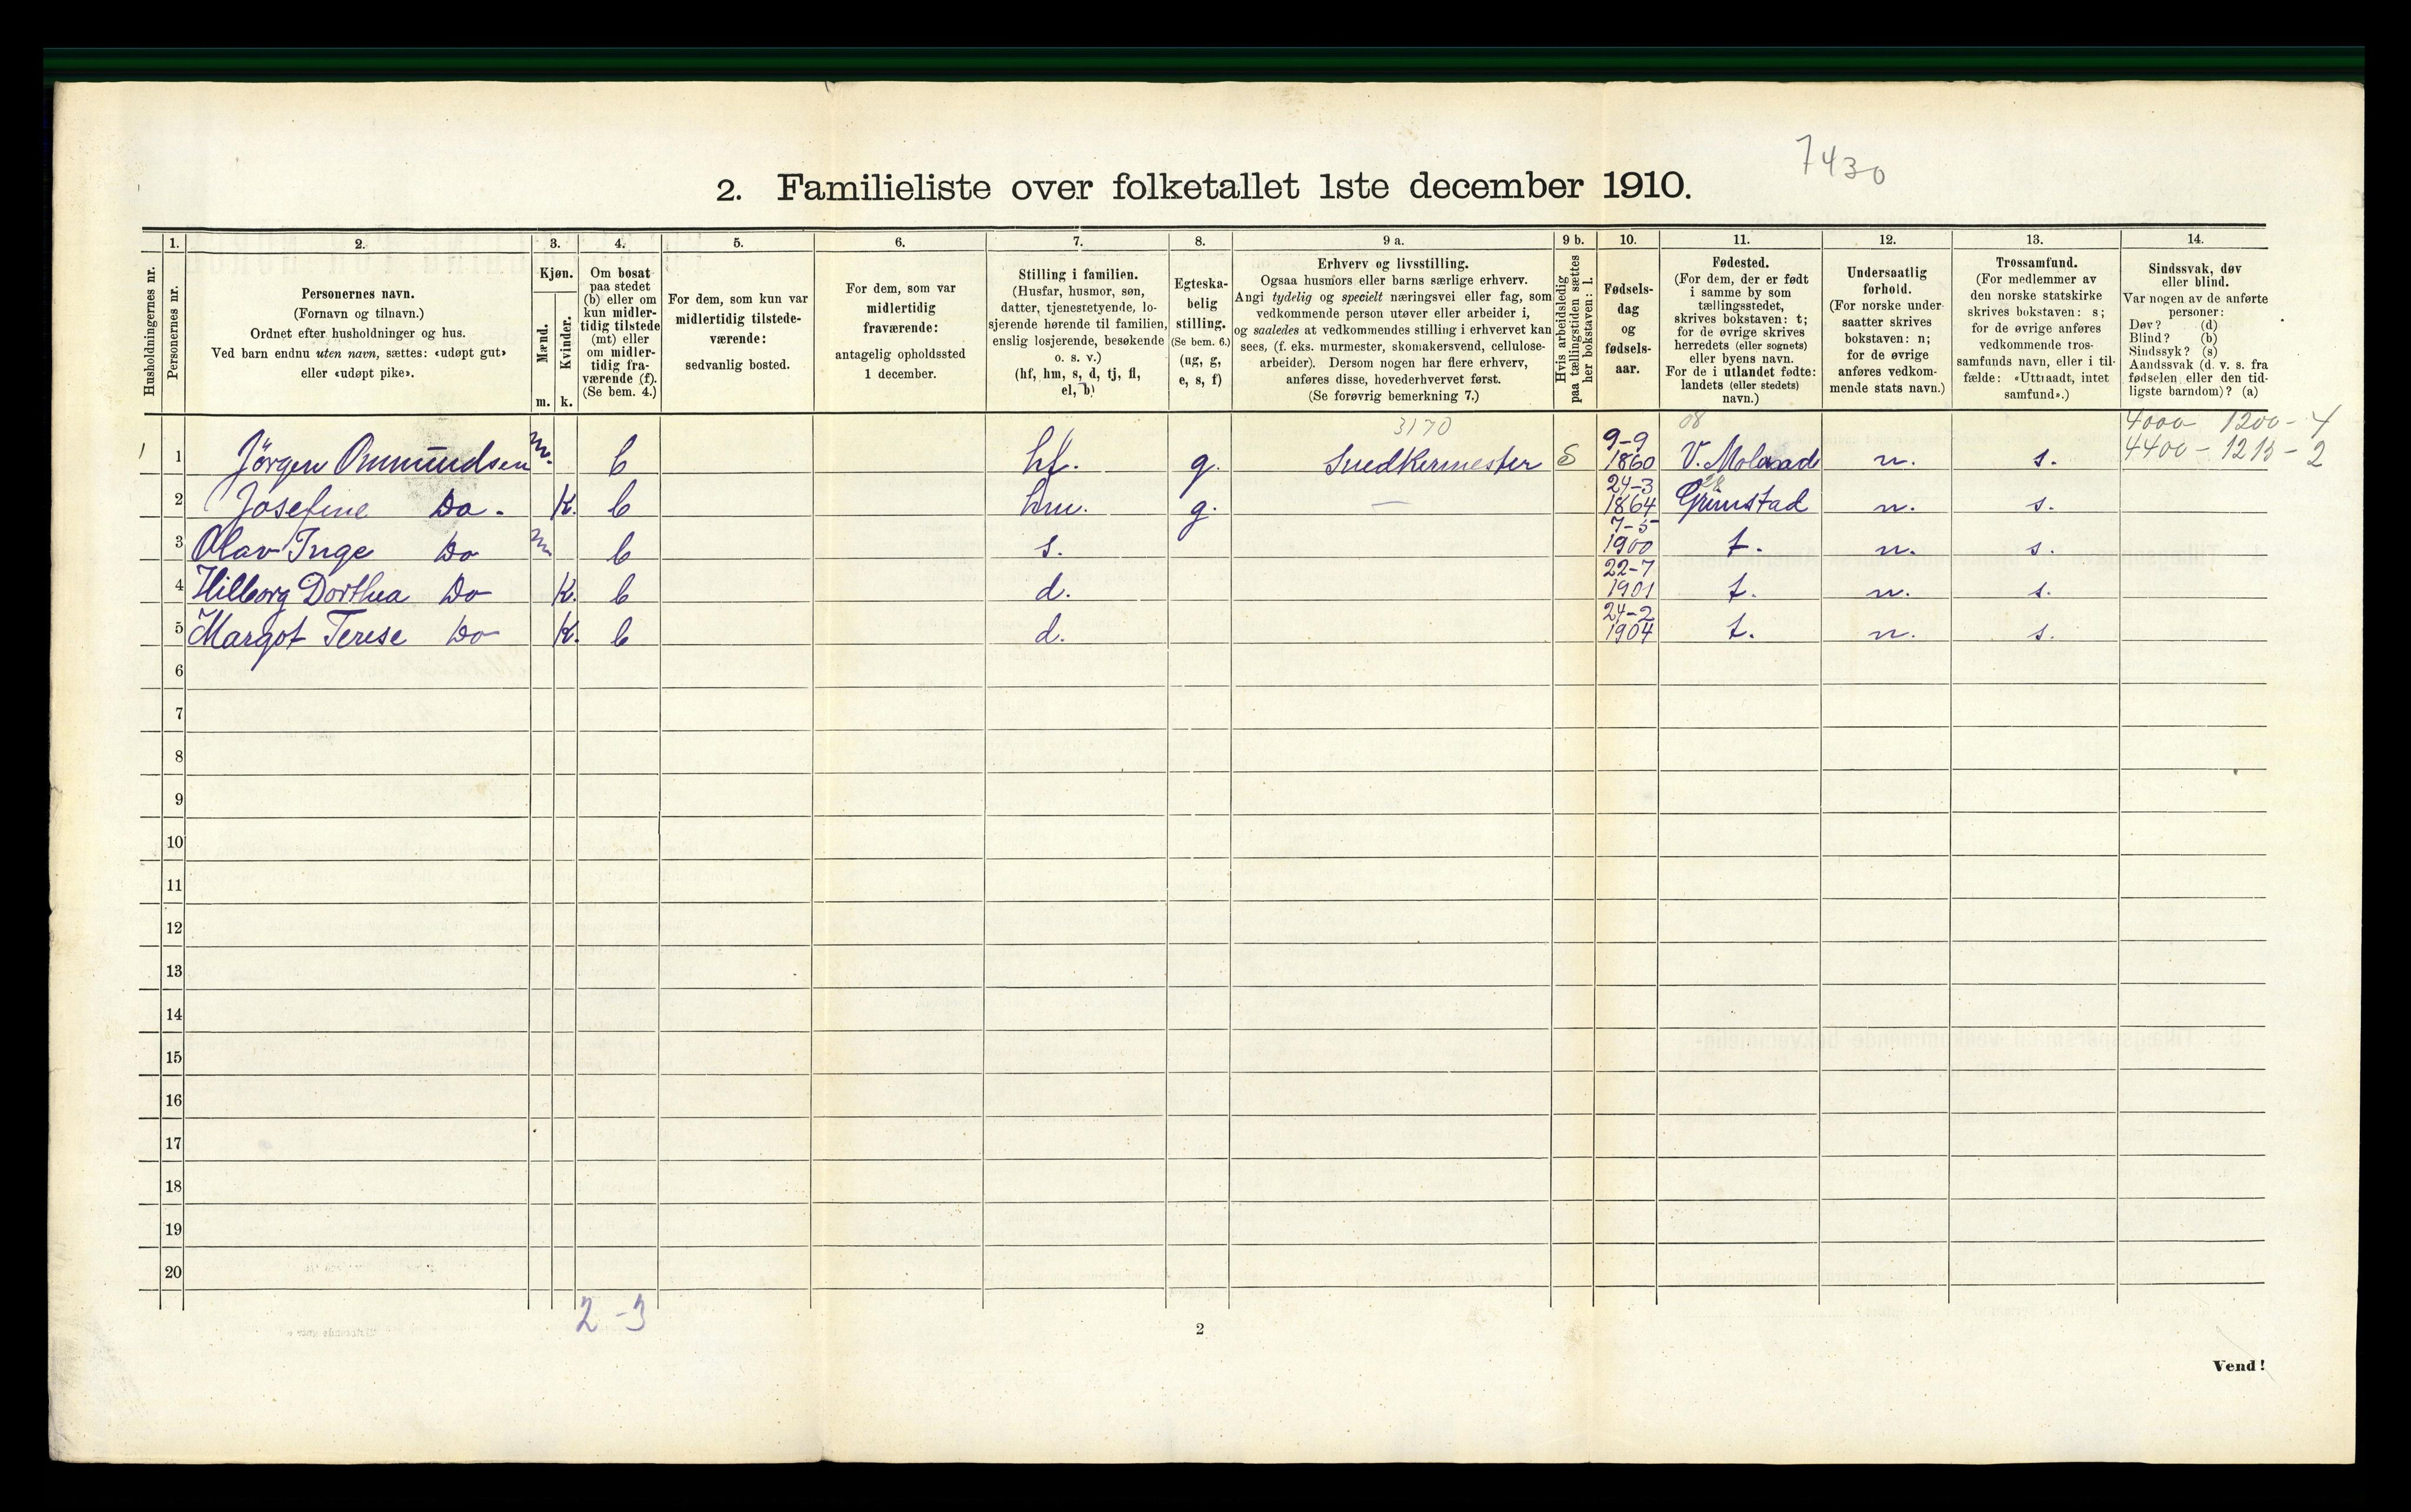 7430
2. Familieliste over folketallet 1ste december 1910.
Husholdningernes nr.
1.
Personernes nr.
2.
Personernes navn.
(Fornavn og tilnavn.)
Ordnet efter husholdninger og hus.
Ved barn endnu uten navn, sættes: «udøpt gut»
eller «udøpt pike».
3.
Kjøn.
Mænd.
Kvinder.
m. k.
4.
Om bosat
paa stedet
(b) eller om
kun midler-
tidig tilstede
(mt) eller
om midler-
tidig fra-
værende (f).
(Se bem. 4.)
5.
For dem, som kun var
midlertidig tilstede-
værende:
sedvanlig bosted.
6.
For dem, som var
midlertidig
fraværende:
antagelig opholdssted
1 december.
7.
Stilling i familien.
(Husfar, husmor, søn,
datter, tjenestetyende, lo-
sjerende hørende til familien,
enslig losjerende, besøkende
o. s. v.)
(hf, hm, s, d, tj, fl,
el, b)
8.
Egteska-
belig
stilling.
(Se bem. 6.)
(ug, g,
e, s, f)
9 a.
Erhverv og livsstilling.
Ogsaa husmors eller barns særlige erhverv.
Angi tydelig og specielt næringsvei eller fag, som
vedkommende person utøver eller arbeider i,
og saaledes at vedkommendes stilling i erhvervet kan
sees, (f. eks. murmester, skomakersvend, cellulose-
arbeider). Dersom nogen har flere erhverv,
anføres disse, hovederhvervet først.
(Se forøvrig bemerkning 7.)
9 b.
Hvis arbeidsledig
paa tællingstiden sættes
her bokstaven: l.
10.
Fødsels-
dag
og
fødsels-
aar.
11.
Fødested.
(For dem, der er født
i samme by som
tællingsstedet,
skrives bokstaven: t;
for de øvrige skrives
herredets (eller sognets)
eller byens navn.
For de i utlandet fødte:
landets (eller stedets)
navn.)
12.
Undersaatlig
forhold.
(For norske under-
saatter skrives
bokstaven: n;
for de øvrige
anføres vedkom-
mende stats navn.)
13.
Trossamfund.
(For medlemmer av
den norske statskirke
skrives bokstaven: s;
for de øvrige anføres
vedkommende tros-
samfunds navn, eller i til-
fælde: «Uttraadt, intet
samfund».)
14.
Sindssvak, døv
eller blind.
Var nogen av de anførte
personer:
Døv? (d)
Blind? (b)
Sindssyk? (s)
Aandssvak (d. v. s. fra
fødselen eller den tid-
ligste barndom)? (a)
3170 08 4000 - 1200 - 4
4400 - 1215 - 2
1 1 Jörgen Ommundsen m. b hf. g. Snedkermester S 9-9 1860 V. Moland n. s.
28
2 Josefine Do. K. b hm. g. — 24-3 1864 Grimstad n. s.
3 Olav Inge Do m b s. 7-5 1900 t. n. s.
4 Hilborg Dorthea Do K. b d. 22-7 1901 t. n. s.
5 Margot Terese Do K. b d. 24-2 1904 t. n. s.
6
7
8
9
10
11
12
13
14
15
16
17
18
19
20
2 - 3
2
Vend!